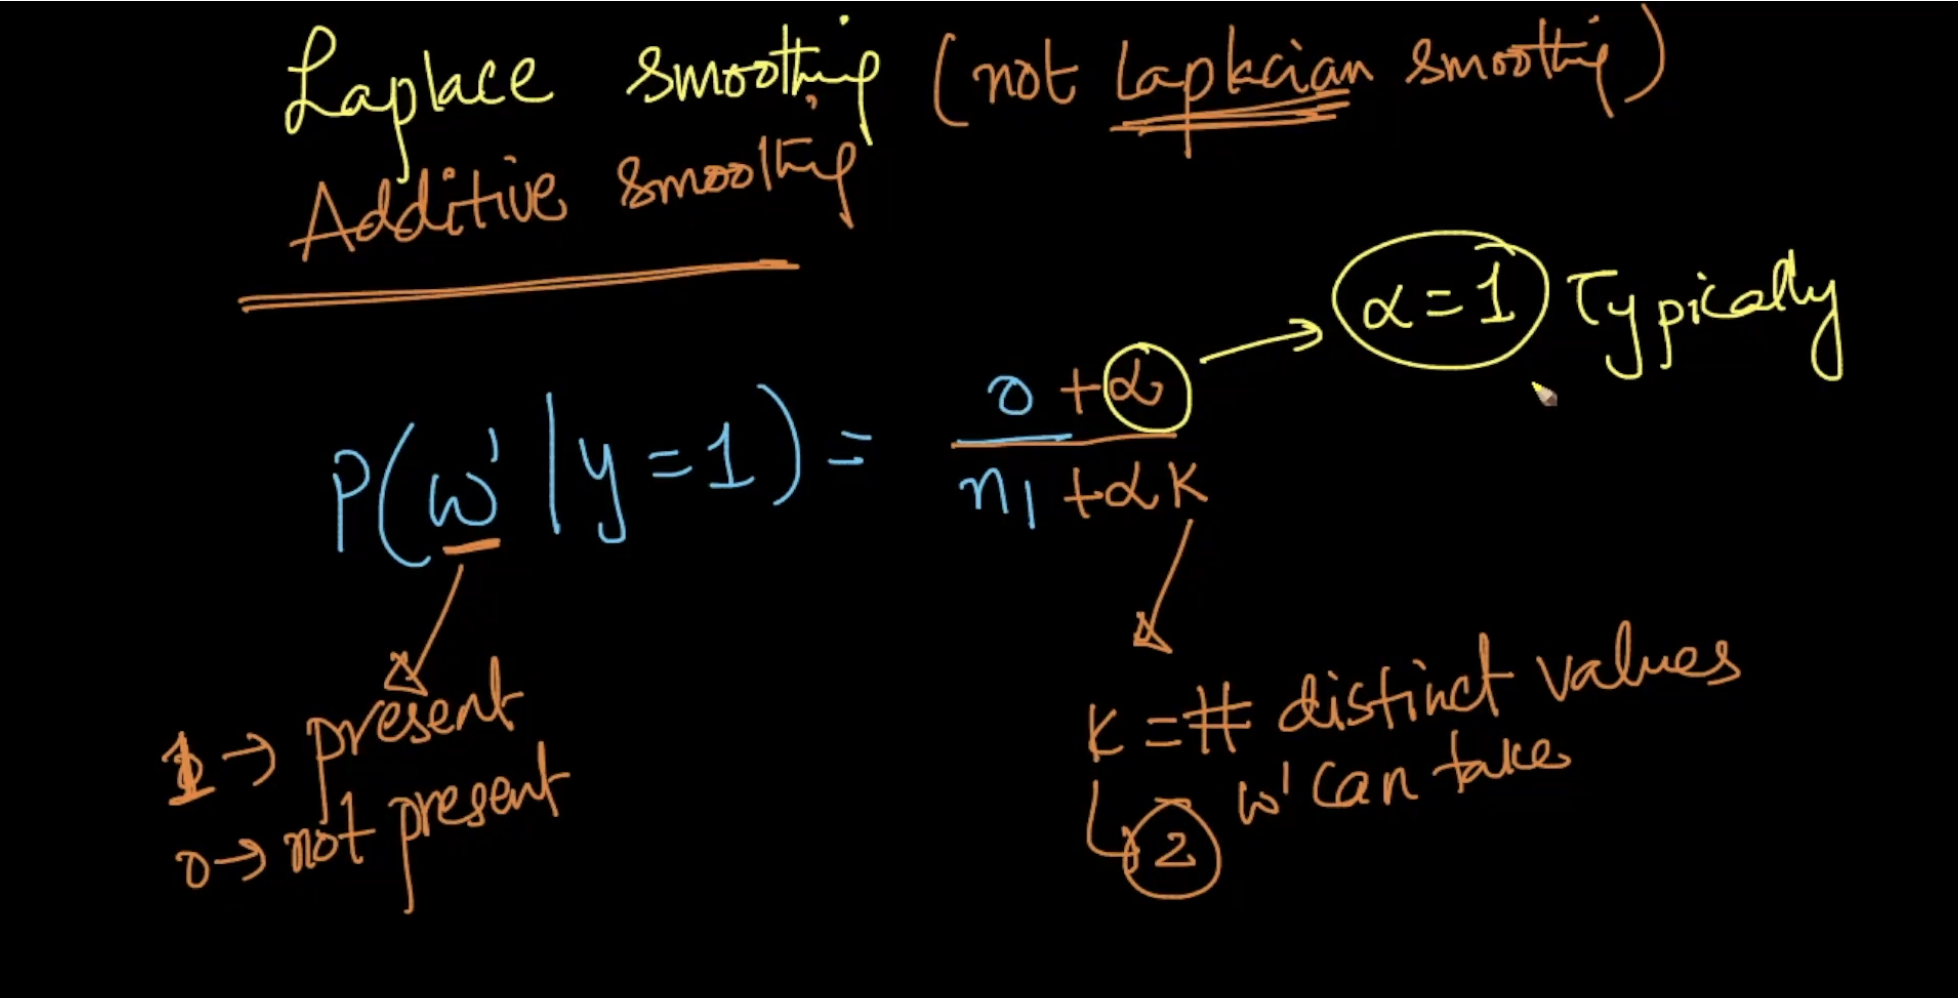 Laplace smoothing (not Laplacian smoothing)
Additive smoothing
α = 1 Typically
P(w' | y = 1) = (0 + α) / (n₁ + αK)
1 → present
0 → not present
K = # distinct values
w' can take
2